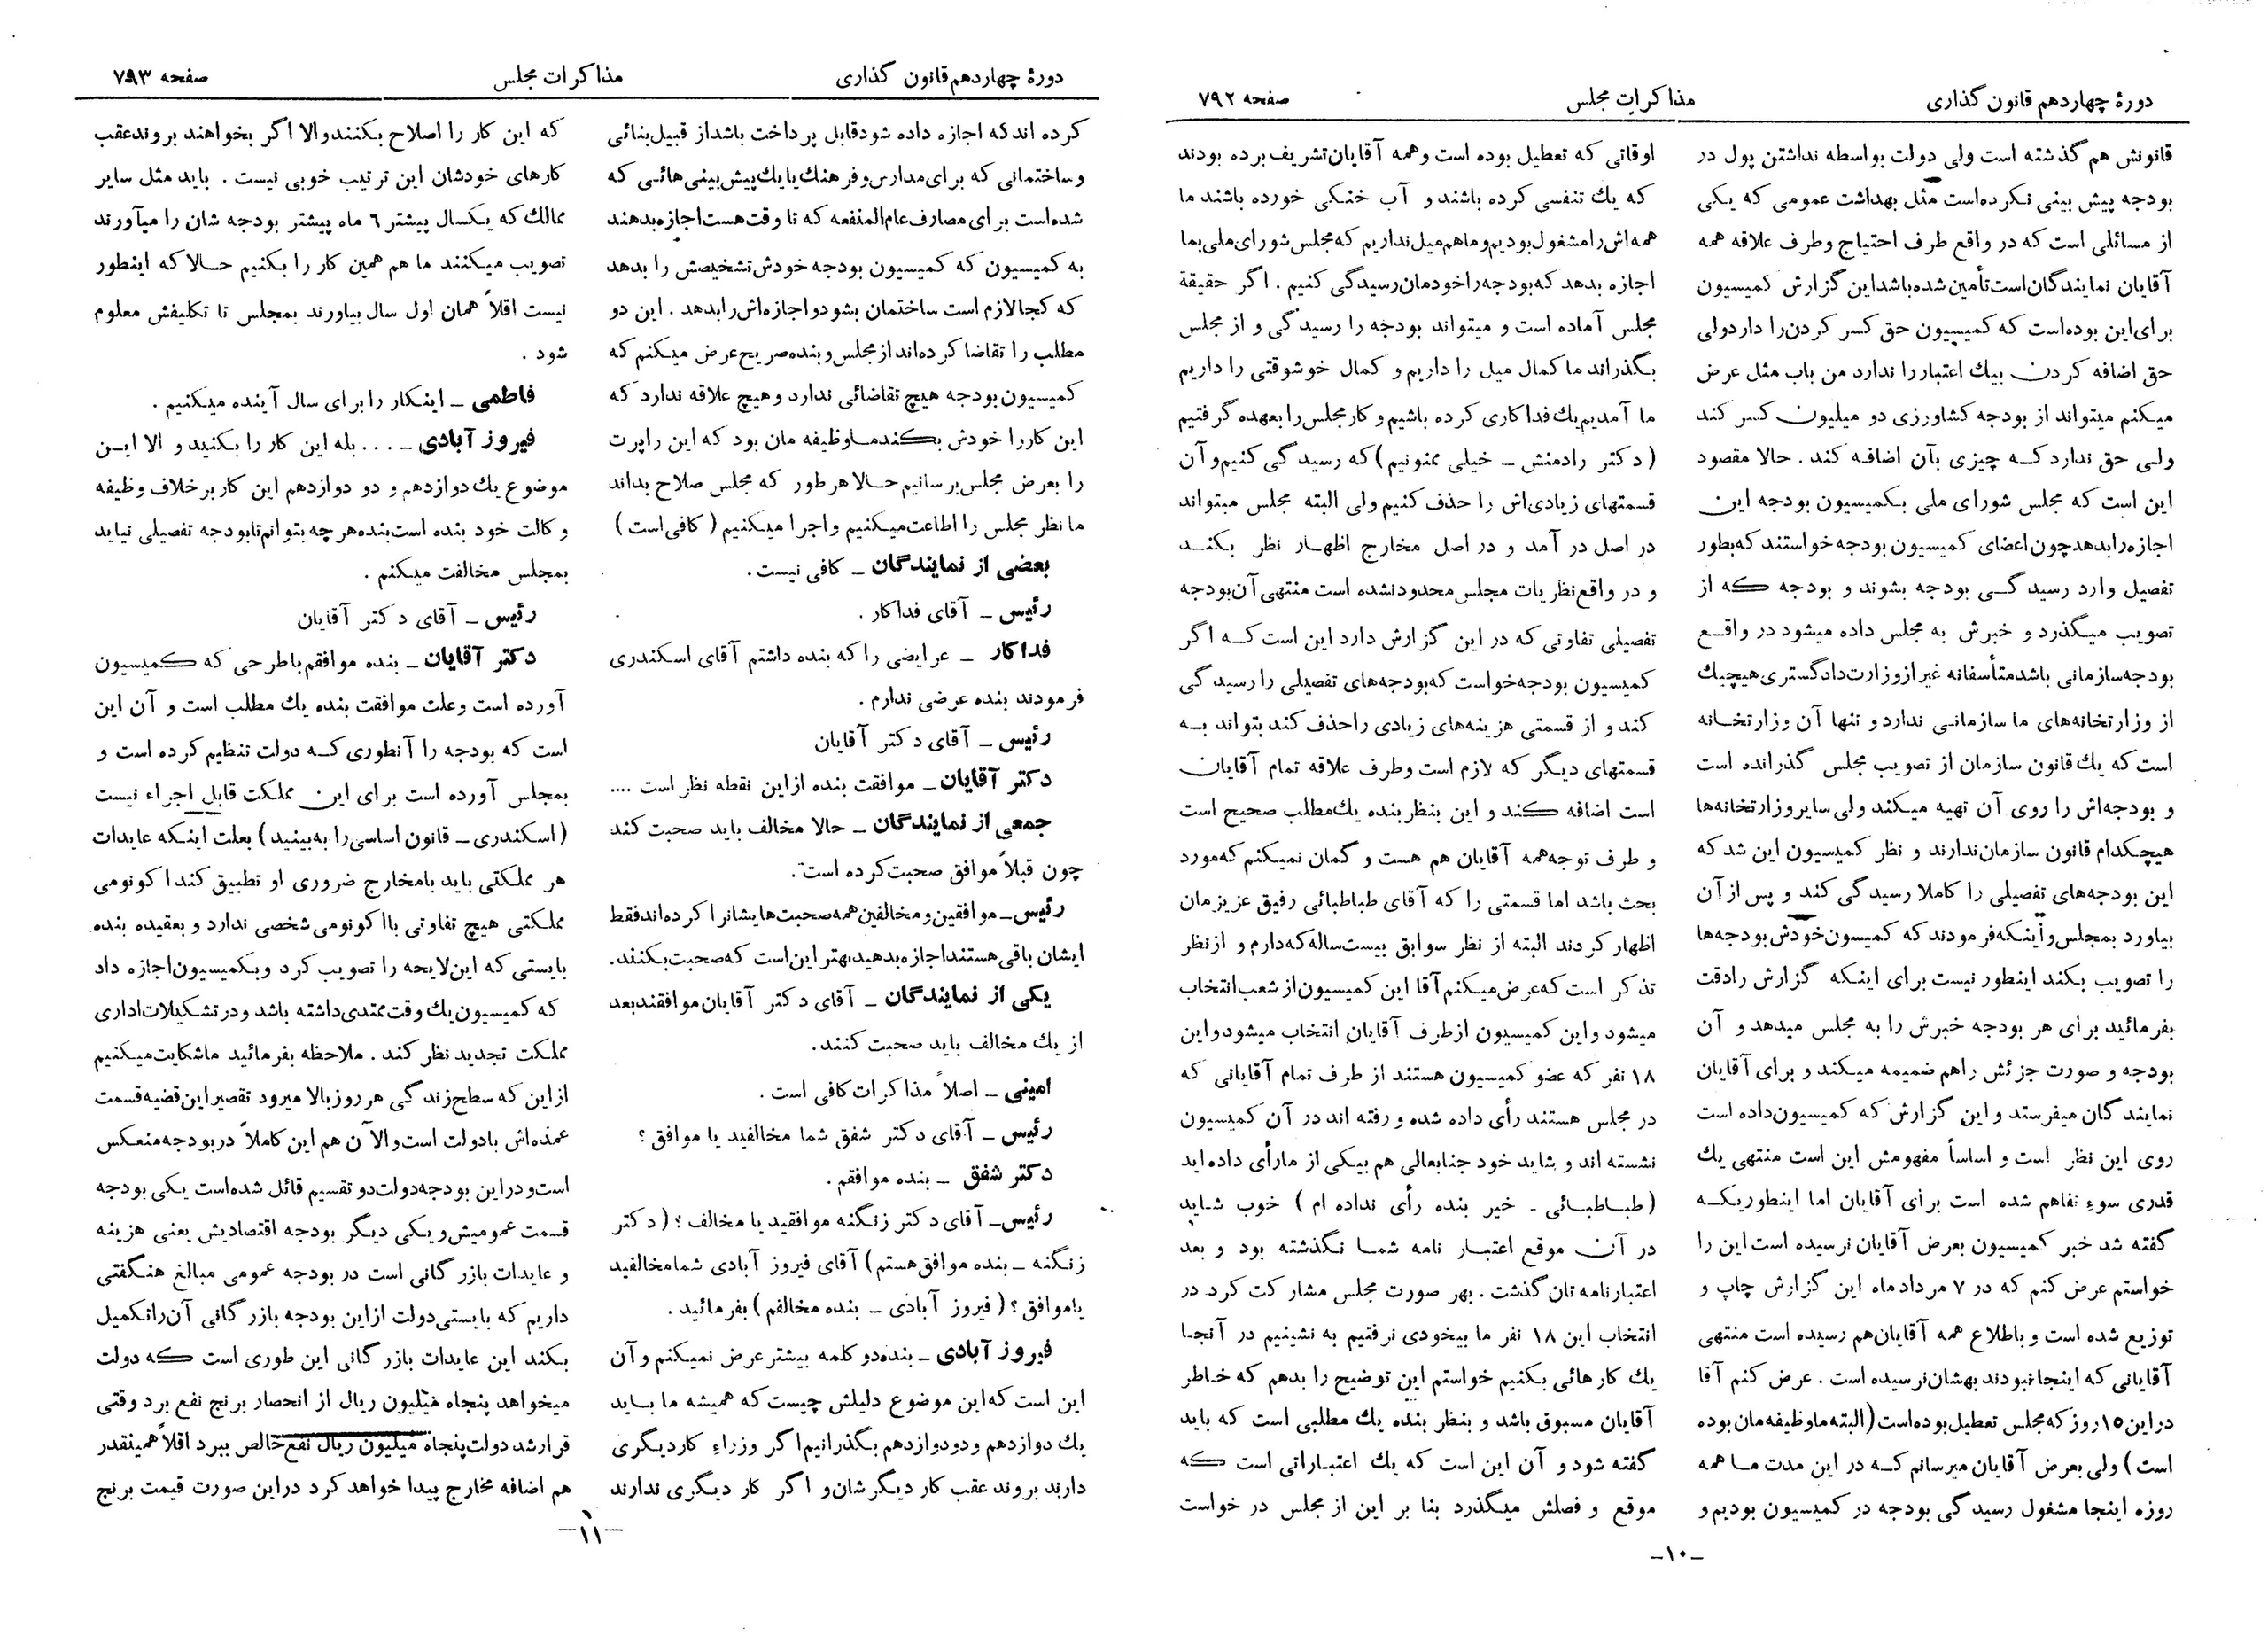 دورهٔ چهاردهم قانون گذاری
مذاکرات مجلس
صفحه ۷۹۲
قانونش هم گذشته است ولی دولت بواسطه نداشتن پول در
بودجه پیش بینی نکرده‌است مثل بهداشت عمومی که یکی
از مسائلی است که در واقع طرف احتیاج وطرف علاقه همه
آقایان نمایندگان‌است‌تأمین شده‌باشداین گزارش کمیسیون
برای‌این بوده‌است که کمیسیون حق کسر کردن‌را داردولی
حق اضافه کردن بیك اعتبار را ندارد من باب مثل عرض
میکنم میتواند از بودجه کشاورزی دو میلیون کسر کند
ولی حق ندارد که چیزی بآن اضافه کند . حالا مقصود
این است که مجلس شورای ملی بکمیسیون بودجه این
اجازه‌رابدهدچون‌اعضای کمیسیون بودجه‌خواستند که‌بطور
تفصیل وارد رسید گی بودجه بشوند و بودجه که از
تصویب میگذرد و خبرش به مجلس داده میشود در واقع
بودجه‌سازمانی باشدمتأسفانه غیرازوزارت‌دادگستری‌هیچیك
از وزارتخانه‌های ما سازمانی ندارد و تنها آن وزارتخانه
است که یك قانون سازمان از تصویب مجلس گذرانده است
و بودجه‌اش را روی آن تهیه میکند ولی سایروزارتخانه‌ها
هیچکدام قانون سازمان‌ندارند و نظر کمیسیون این شد که
این بودجه‌های تفصیلی را کاملا رسیدگی کند و پس از آن
بیاورد بمجلس‌واینکه‌فرمودند که کمیسون‌خودش بودجه‌ها
را تصویب بکند اینطور نیست برای اینکه گزارش رادقت
بفرمائید برای هر بودجه خبرش را به مجلس میدهد و آن
بودجه و صورت جزئش راهم ضمیمه میکند و برای آقایان
نمایندگان میفرستد و این گزارش که کمیسیون‌داده است
روی این نظر است و اساساً مفهومش این است منتهی یك
قدری سوء تفاهم شده است برای آقایان اما اینطوریکه
گفته شد خبر کمیسیون بعرض آقایان نرسیده است‌این را
خواستم عرض کنم که در ۷ مرداد ماه این گزارش چاپ و
توزیع شده است و باطلاع همه آقایان‌هم رسیده است منتهی
آقایانی که اینجانبودند بهشان‌نرسیده است . عرض کنم آقا
دراین۱۵روز که‌مجلس تعطیل بوده‌است (البته‌ماوظیفه‌مان بوده
است) ولی بعرض آقایان میرسانم که در این مدت ما همه
روزه اینجا مشغول رسیدگی بودجه در کمیسیون بودیم و
اوقاتی که تعطیل بوده است وهمه آقایان‌تشریف‌برده بودند
که یك تنفسی کرده باشند و آب خنکی خورده باشند ما
همه‌اش‌رامشغول‌بودیم‌وماهم‌میل‌نداریم که‌مجلس‌شورای‌ملی‌بما
اجازه بدهد که‌بودجه‌راخودمان‌رسیدگی کنیم . اگر حقیقة
مجلس آماده است و میتواند بودجه را رسیدگی و از مجلس
بگذراند ما کمال میل را داریم و کمال خوشوقتی را داریم
ما آمدیم‌یك‌فداکاری کرده باشیم و کارمجلس‌رابعهده گرفتیم
(دکتر رادمنش – خیلی ممنونیم) که رسیدگی کنیم‌وآن
قسمتهای زیادی‌اش را حذف کنیم ولی البته مجلس میتواند
در اصل در آمد و در اصل مخارج اظهار نظر بکند
و در واقع‌نظریات مجلس‌محدودنشده است منتهی آن‌بودجه
تفصیلی تفاوتی که در این گزارش دارد این است که اگر
کمیسیون بودجه‌خواست که‌بودجه‌های تفصیلی را رسیدگی
کند و از قسمتی هزینه‌های زیادی راحذف کند بتواند به
قسمتهای دیگر که لازم است وطرف علاقه تمام آقایان
است اضافه کند و این بنظربنده یك‌مطلب صحیح است
و طرف توجه‌همه آقایان هم هست و گمان نمیکنم که‌مورد
بحث باشد اما قسمتی را که آقای طباطبائی رفیق عزیزمان
اظهار کردند البته از نظر سوابق بیست‌ساله که‌دارم و از‌نظر
تذکر است که‌عرض‌میکنم‌آقا این کمیسیون‌از شعب‌انتخاب
میشود واین کمیسیون ازطرف آقایان انتخاب میشودواین
۱۸ نفر که عضو کمیسیون هستند از طرف تمام آقایانی که
در مجلس هستند رأی داده شده و رفته اند در آن کمیسیون
نشسته اند و شاید خود جنابعالی هم بیکی از مارأی داده‌اید
(طباطبائی - خیر بنده رأی نداده ام) خوب شاید
در آن موقع اعتبار نامه شما نگذشته بود و بعد
اعتبارنامه تان گذشت . بهر صورت مجلس مشارکت کرد در
انتخاب این ۱۸ نفر ما بیخودی نرفتیم به نشینیم در آنجا
یك کارهائی بکنیم خواستم این توضیح را بدهم که خاطر
آقایان مسبوق باشد و بنظر بنده یك مطلبی است که باید
گفته شود و آن این است که یك اعتباراتی است که
موقع و فصلش میگذرد بنا بر این از مجلس در خواست
–۱۰–
دورهٔ چهاردهم قانون گذاری
مذاکرات مجلس
صفحه ۷۹۳
کرده اند که اجازه داده شودقابل پرداخت باشداز قبیل‌بنائی
وساختمانی که برای‌مدارس‌وفرهنك‌یایك‌پیش‌بینی‌هائی که
شده‌است برای مصارف‌عام‌المنفعه که تا وقت‌هست‌اجازه‌بدهند
به کمیسیون که کمیسیون بودجه خودش‌تشخیصش را بدهد
که کجالازم است ساختمان بشودواجازه‌اش‌رابدهد . این دو
مطلب را تقاضا کرده‌اند‌از‌مجلس‌وبنده‌صریح‌عرض میکنم که
کمیسیون‌بودجه هیچ تقاضائی ندارد وهیچ علاقه ندارد که
این کاررا خودش بکندماوظیفه مان بود که این راپرت
را بعرض مجلس‌برسانیم حالا هرطور که مجلس صلاح بداند
ما نظر مجلس را اطاعت‌میکنیم و اجرا میکنیم (کافی‌است)
بعضی از نمایندگان – کافی نیست .
رئیس – آقای فداکار .
فداکار – عرایضی را که بنده داشتم آقای اسکندری
فرمودند بنده عرضی ندارم .
رئیس – آقای دکتر آقایان
دکتر آقایان – موافقت بنده ازاین نقطه نظر است ....
جمعی از نمایندگان – حالا مخالف باید صحبت کند
چون قبلاً موافق صحبت‌کرده است .
رئیس– موافقین‌ومخالفین‌همه‌صحبت‌هایشانرا کرده‌اندفقط
ایشان باقی‌هستنداجازه‌بدهید،بهتراین‌است که‌صحبت‌بکنند.
یکی از نمایندگان – آقای دکتر آقایان‌موافقندبعد
از یك مخالف باید صحبت کنند.
امینی – اصلاً مذاکرات کافی است .
رئیس – آقای دکتر شفق شما مخالفید یا موافق ؟
دکتر شفق – بنده موافقم .
رئیس– آقای دکتر زنگنه موافقید یا مخالف ؟ (دکتر
زنگنه – بنده موافق‌هستم) آقای فیروز آبادی شمامخالفید
یاموافق؟ (فیروز آبادی – بنده مخالفم) بفرمائید .
فیروز آبادی – بنده‌دو کلمه بیشترعرض نمیکنم وآن
این است که‌این موضوع دلیلش چیست که همیشه ما باید
یك دوازدهم و دودوازدهم بگذرانیم‌اگر وزراء کاردیگری
دارند بروند عقب کار دیگرشان‌و اگر کار دیگری ندارند
که این کار را اصلاح بکنندوالا اگر بخواهند بروندعقب
کارهای خودشان این ترتیب خوبی نیست . باید مثل سایر
ممالك که یکسال پیشتر ٦ ماه پیشتر بودجه شان را میآورند
تصویب میکنند ما هم همین کار را بکنیم حالا که اینطور
نیست اقلاً همان اول سال بیاورند بمجلس تا تکلیفش معلوم
شود .
فاطمی – اینکار را برای سال آینده میکنیم .
فیروز آبادی – ... بله این کار را بکنید و الا این
موضوع یك دوازدهم و دو دوازدهم این کار برخلاف وظیفه
وکالت خود بنده است‌بنده‌هر چه بتوانم‌تابودجه تفصیلی نیاید
بمجلس مخالفت میکنم .
رئیس – آقای دکتر آقایان
دکتر آقایان – بنده موافقم‌باطرحی که کمیسیون
آورده است وعلت موافقت بنده یك مطلب است و آن این
است که بودجه را آنطوری که دولت تنظیم کرده است و
بمجلس آورده است برای این مملکت قابل اجراء نیست
(اسکندری – قانون اساسی‌را به‌بینید) بعلت اینکه عایدات
هر مملکتی باید بامخارج ضروری او تطبیق کند اکونومی
مملکتی هیچ تفاوتی بااکونومی شخصی ندارد و بعقیده بنده
بایستی که این‌لایحه را تصویب کرد وبکمیسیون‌اجازه داد
که کمیسیون‌یك وقت‌ممتدی‌داشته باشد ودرتشکیلات‌اداری
مملکت تجدید نظر کند . ملاحظه بفرمائید ماشکایت‌میکنیم
ازاین که سطح‌زندگی هرروز‌بالا میرود تقصیراین‌قضیه‌قسمت
عمده‌اش بادولت است‌والآن هم این کاملاً دربودجه‌منعکس
است‌ودراین بودجه‌دولت‌دو تقسیم قائل شده‌است یکی بودجه
قسمت عمومیش‌ویکی دیگر بودجه اقتصادیش یعنی هزینه
و عایدات بازرگانی است در بودجه عمومی مبالغ هنگفتی
داریم که بایستی‌دولت ازاین بودجه بازرگانی آن‌راتکمیل
بکند این عایدات بازرگانی این طوری است که دولت
میخواهد پنجاه میلیون ریال از انحصار برنج نفع برد وقتی
قرارشد دولت‌پنجاه میلیون ریال نفع خالص ببرد اقلاً همینقدر
هم اضافه مخارج پیدا خواهد کرد دراین صورت قیمت برنج
–۱۱–